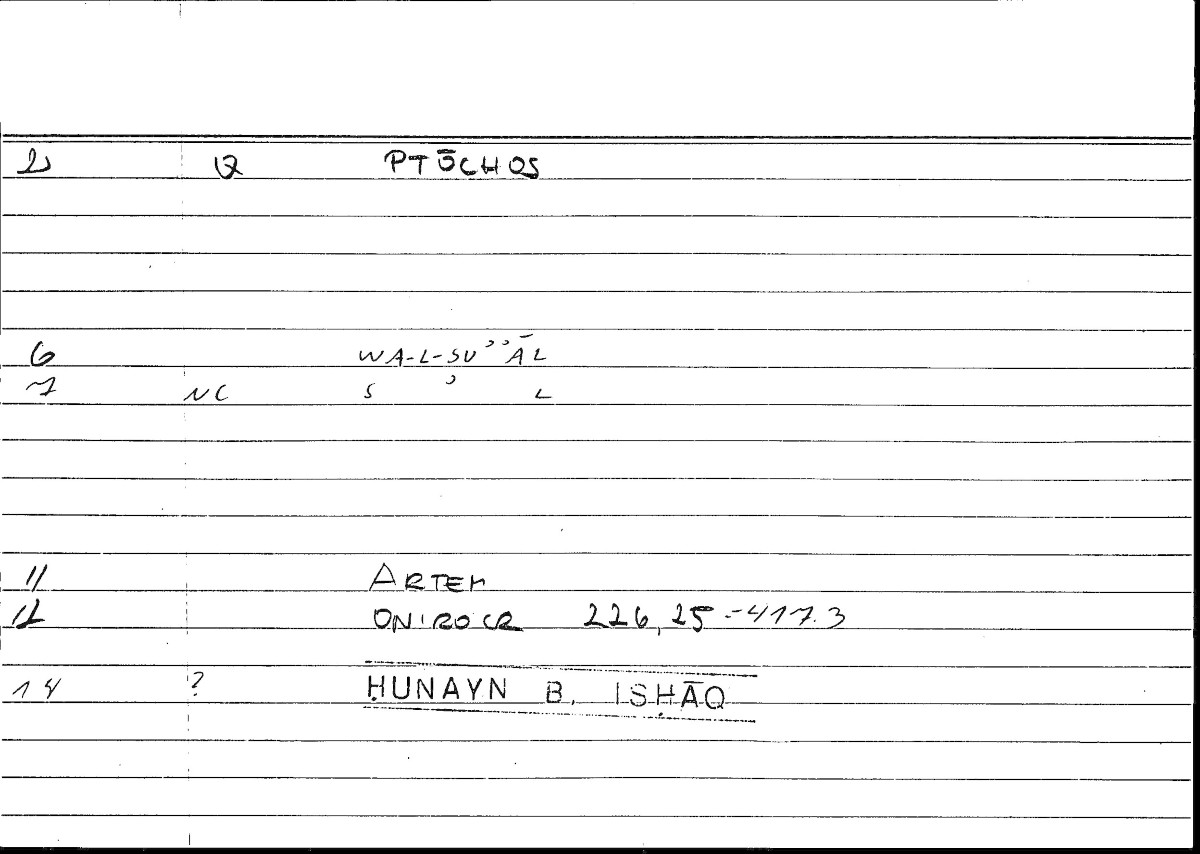 2 Q PTŌCHOS
6 WA-L-SUʾʾĀL
7 NC S ʾ L
11 ARTEM
12 ONIROCR 226,25-417.3
14 ? ḤUNAYN B. ISḤĀQ